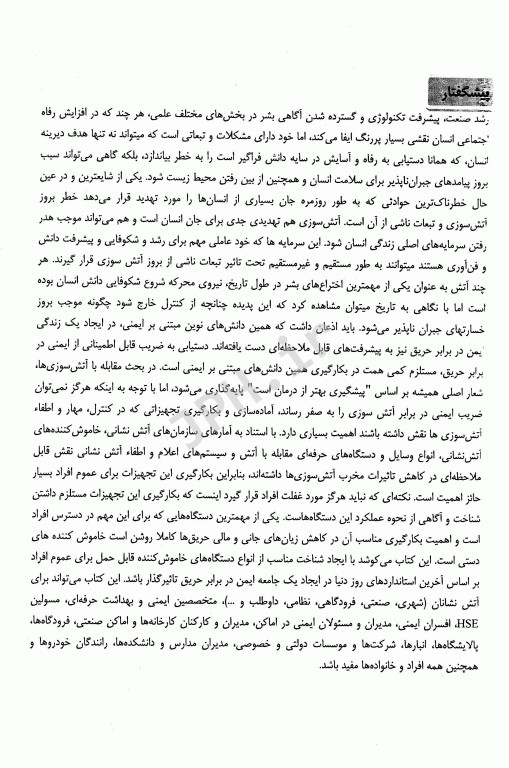 پیشگفتار
رشد صنعت، پیشرفت تکنولوژی و گسترده شدن آگاهی بشر در بخش‌های مختلف علمی، هر چند که در افزایش رفاه
اجتماعی انسان نقشی بسیار پررنگ ایفا می‌کند، اما خود دارای مشکلات و تبعاتی است که میتواند نه تنها هدف دیرینه
انسان، که همانا دستیابی به رفاه و آسایش در سایه دانش فراگیر است را به خطر بیاندازد، بلکه گاهی می‌تواند سبب
بروز پیامدهای جبران‌ناپذیر برای سلامت انسان و همچنین از بین رفتن محیط زیست شود. یکی از شایعترین و در عین
حال خطرناک‌ترین حوادثی که به طور روزمره جان بسیاری از انسان‌ها را مورد تهدید قرار می‌دهد خطر بروز
آتش‌سوزی و تبعات ناشی از آن است. آتش‌سوزی هم تهدیدی جدی برای جان انسان است و هم می‌تواند موجب هدر
رفتن سرمایه‌های اصلی زندگی انسان شود. این سرمایه ها که خود عاملی مهم برای رشد و شکوفایی و پیشرفت دانش
و فن‌آوری هستند میتوانند به طور مستقیم و غیرمستقیم تحت تاثیر تبعات ناشی از بروز آتش سوزی قرار گیرند. هر
چند آتش به عنوان یکی از مهمترین اختراع‌های بشر در طول تاریخ، نیروی محرکه شروع شکوفایی دانش انسان بوده
است اما با نگاهی به تاریخ میتوان مشاهده کرد که این پدیده چنانچه از کنترل خارج شود چگونه موجب بروز
خسارتهای جبران ناپذیر می‌شود. باید اذعان داشت که همین دانش‌های نوین مبتنی بر ایمنی، در ایجاد یک زندگی
ایمن در برابر حریق نیز به پیشرفت‌های قابل ملاحظه‌ای دست یافته‌اند. دستیابی به ضریب قابل اطمینانی از ایمنی در
برابر حریق، مستلزم کمی همت در بکارگیری همین دانش‌های مبتنی بر ایمنی است. در بحث مقابله با آتش‌سوزی‌ها،
شعار اصلی همیشه بر اساس "پیشگیری بهتر از درمان است" پایه‌گذاری می‌شود، اما با توجه به اینکه هرگز نمی‌توان
ضریب ایمنی در برابر آتش سوزی را به صفر رساند، آماده‌سازی و بکارگیری تجهیزاتی که در کنترل، مهار و اطفاء
آتش‌سوزی ها نقش داشته باشند اهمیت بسیاری دارد. با استناد به آمارهای سازمان‌های آتش نشانی، خاموش‌کننده‌های
آتش‌نشانی، انواع وسایل و دستگاه‌های حرفه‌ای مقابله با آتش و سیستم‌های اعلام و اطفاء آتش نشانی نقش قابل
ملاحظه‌ای در کاهش تاثیرات مخرب آتش‌سوزی‌ها داشته‌اند، بنابراین بکارگیری این تجهیزات برای عموم افراد بسیار
حائز اهمیت است. نکته‌ای که نباید هرگز مورد غفلت افراد قرار گیرد اینست که بکارگیری این تجهیزات مستلزم داشتن
شناخت و آگاهی از نحوه عملکرد این دستگاه‌هاست. یکی از مهمترین دستگاه‌هایی که برای این مهم در دسترس افراد
است و اهمیت بکارگیری مناسب آن در کاهش زیان‌های جانی و مالی حریق‌ها کاملا روشن است خاموش کننده های
دستی است. این کتاب می‌کوشد با ایجاد شناخت مناسب از انواع دستگاه‌های خاموش‌کننده قابل حمل برای عموم افراد
بر اساس آخرین استانداردهای روز دنیا در ایجاد یک جامعه ایمن در برابر حریق تاثیرگذار باشد. این کتاب می‌تواند برای
آتش نشانان (شهری، صنعتی، فرودگاهی، نظامی، داوطلب و ...)، متخصصین ایمنی و بهداشت حرفه‌ای، مسولین
HSE، افسران ایمنی، مدیران و مسئولان ایمنی در اماکن، مدیران و کارکنان کارخانه‌ها و اماکن صنعتی، فرودگاه‌ها،
پالایشگاه‌ها، انبارها، شرکت‌ها و موسسات دولتی و خصوصی، مدیران مدارس و دانشکده‌ها، رانندگان خودروها و
همچنین همه افراد و خانواده‌ها مفید باشد.